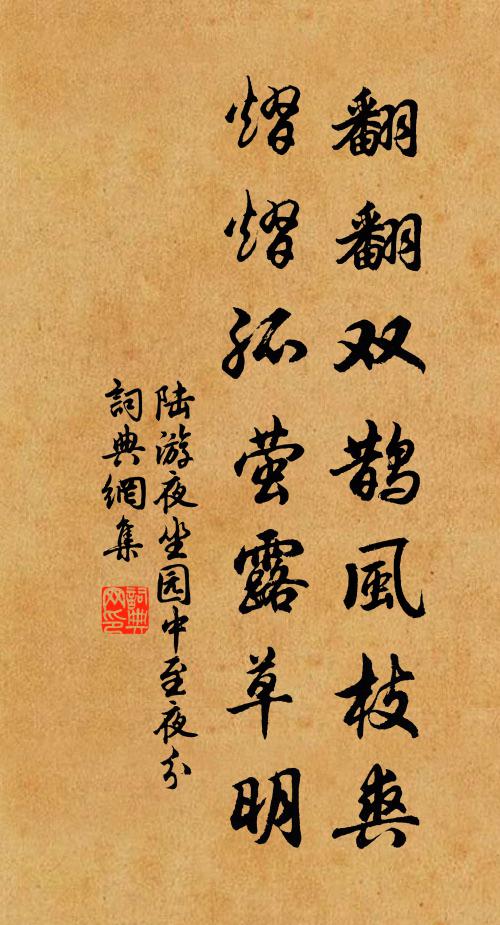 翻翻双鹊風枝爽
熠熠孤萤露草明
陆游夜坐园中至夜分
詞典網集
詞典网印